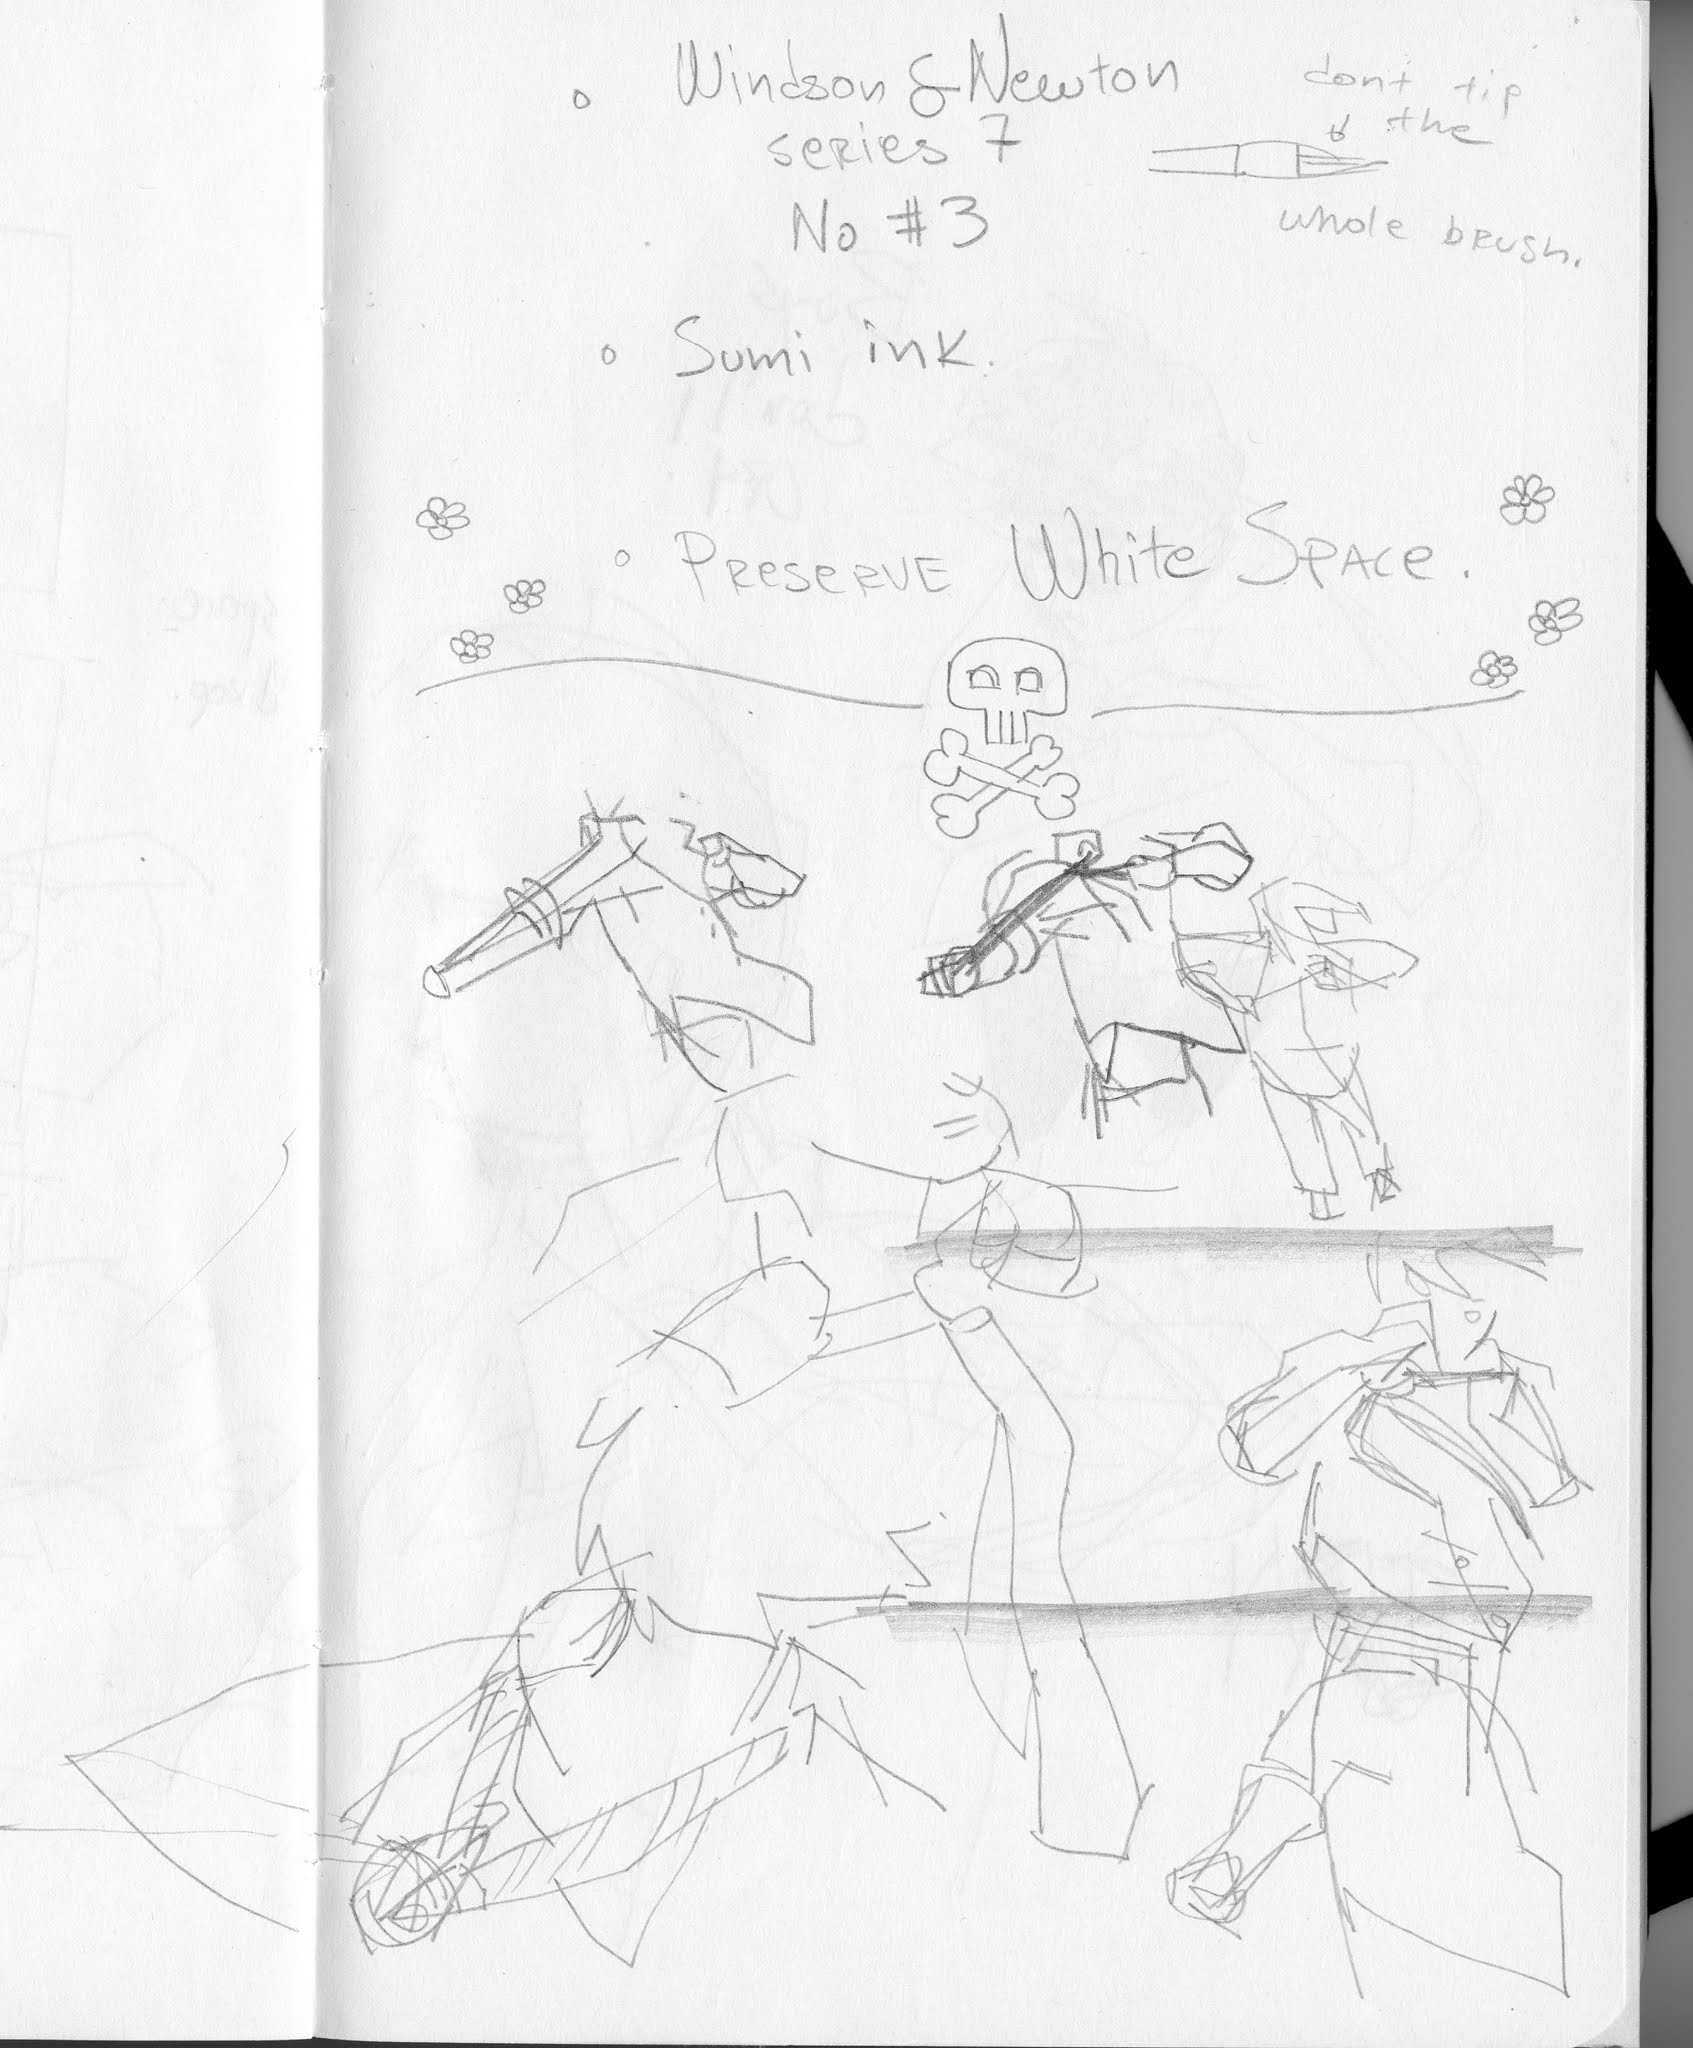 Windson & Newton
series 7
No #3
dont tip
the
whole brush.
Sumi ink.
PRESERVE White SPACE.